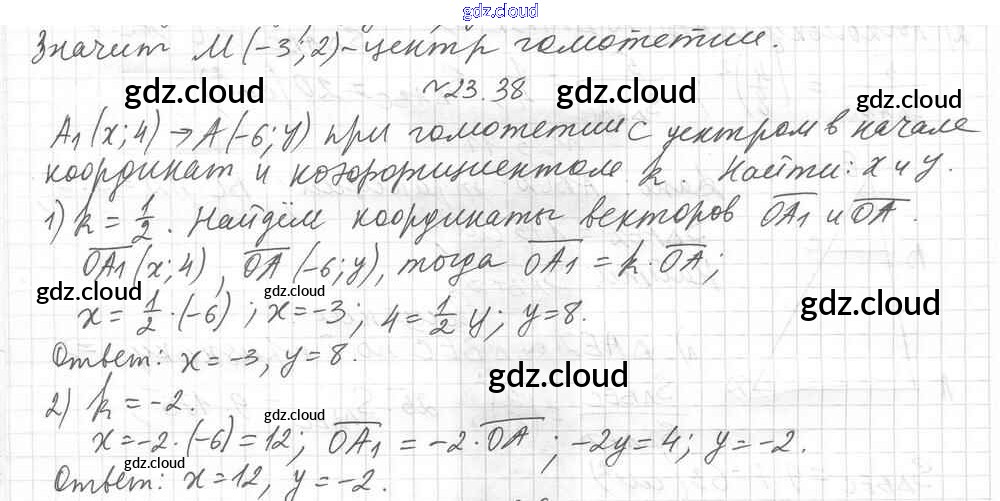 gdz.cloud
Значит М(-3; 2) - центр гомотетии.
gdz.cloud №23.38. gdz.cloud gdz.cloud
A₁(x; 4) → A(-6; y) при гомотетии с центром в начале
координат и коэффициентом k. Найти: x и y.
1) k = 1/2. Найдём координаты векторов OA₁ и OA.
OA₁(x; 4), OA(-6; y), тогда OA₁ = k · OA;
gdz.cloud gdz.cloud gdz.cloud
x = 1/2 · (-6); x = -3; 4 = 1/2 y; y = 8.
Ответ: x = -3, y = 8.
gdz.cloud
2) k = -2.
gdz.cloud
x = -2 · (-6) = 12; OA₁ = -2 · OA; -2y = 4; y = -2.
gdz.cloud
Ответ: x = 12, y = -2.